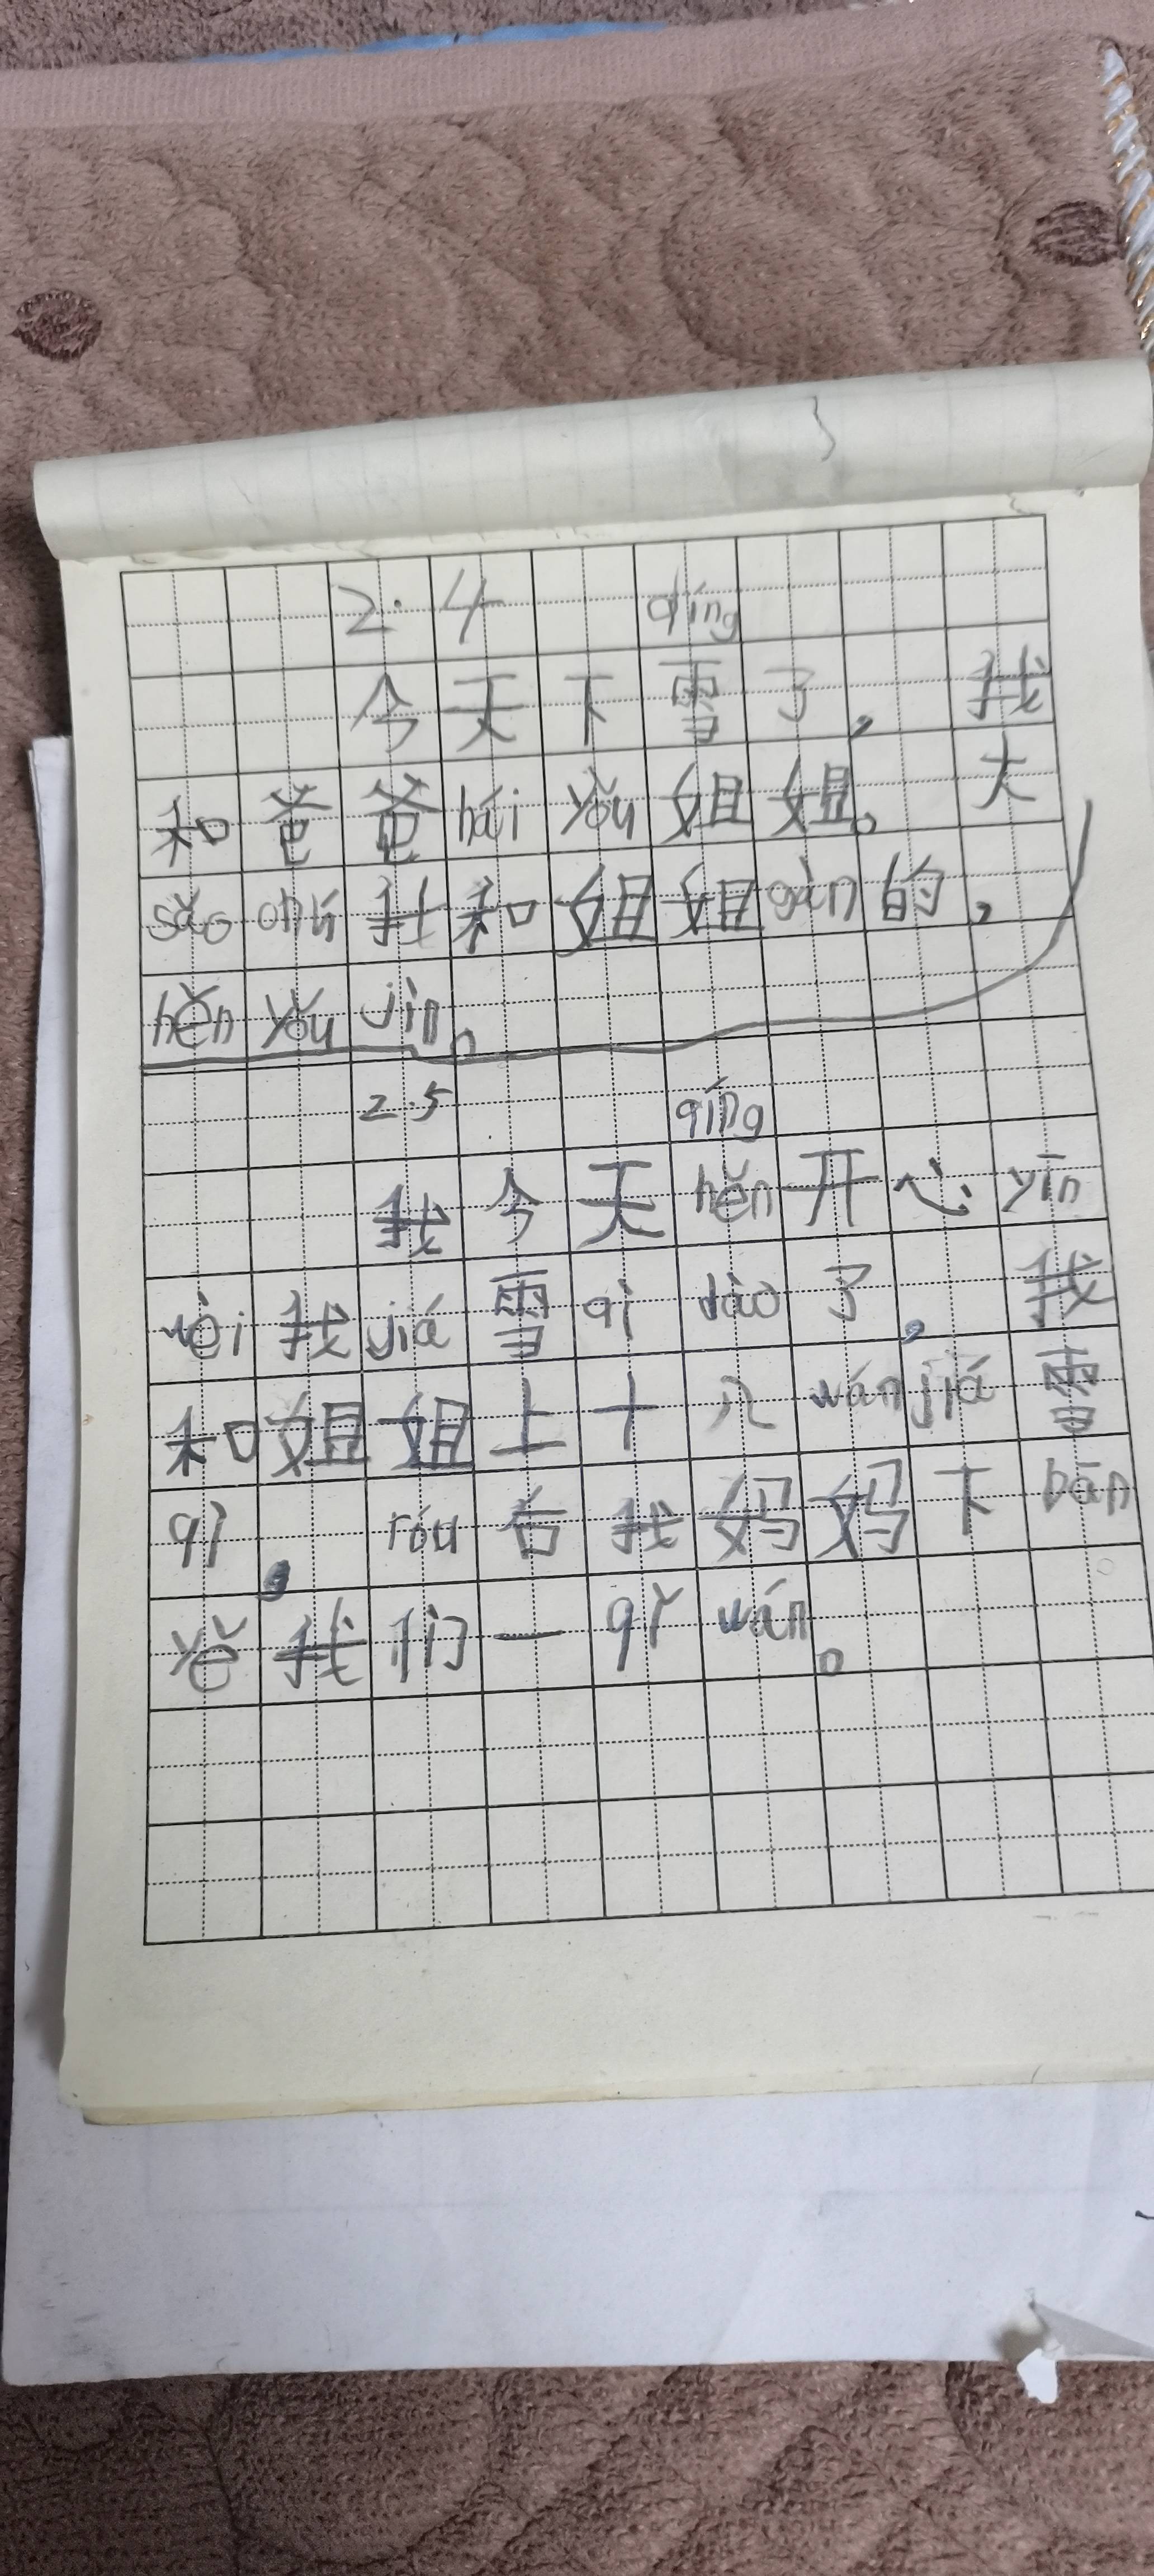 2.4 qíng
今天下雪了,我
和爸爸hái yǒu姐姐。大
sǎo 我和姐姐gàn的,
hěn yǒu jìn。
2.5 qíng
我今天hěn开心yīn
wèi我jiá雪qì dào了,我
和姐姐上十八wán jiá雪
qì,róu后我妈妈下bān
yě我们一qǐ wán。